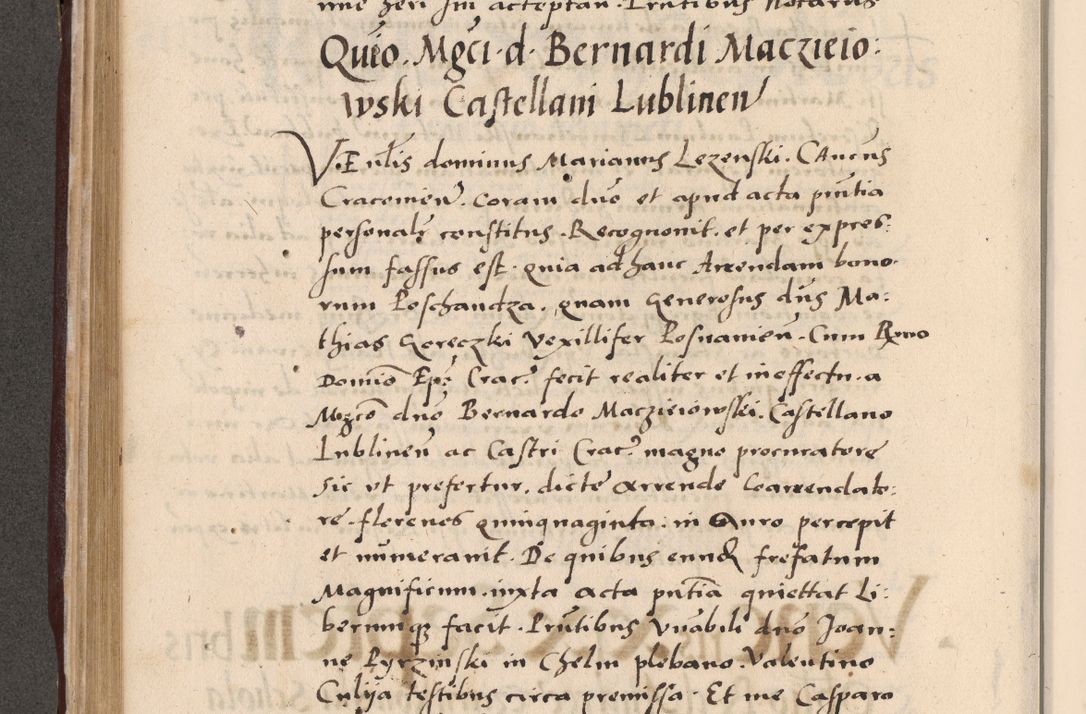 me Jeri Sm acceptan. Prntibus Notarius
Quio. Mgci. d. Bernardi Maczieio:
wski Castellani Lublinen
V.Enlis dominus Marianus Lezenski. CAncus
Cracomien. coram dno et apud acta pntia
personalr constitus. Recognonit. et per expres:
sum fassus est. quia ad hanc Arrendam bono
rum Poschandza. quam Generosus dns Ma:
thias Goreczki Vexillifer Posnanien. Cum Rmo
Domio Epo Crac. fecit realiter et in effectu. a
Mgco dno Bernardo Maczieiowski. Castellano
Lublinen ac Castri Crac. magno procuratore
sic vt prefertur. dicte arrende Coarrendato:
re. florenos quinquaginta: in Auro percepit
et numeravit. De quibus eund frefatum
Magnificum. iuxta acta pntia quiettat Li:
berumq facit. Prntibus Vnabili dno Joan:
ne Pyrzinski in Chelm plebano. Valentino
Culya testibus circa premissa. Et me Casparo